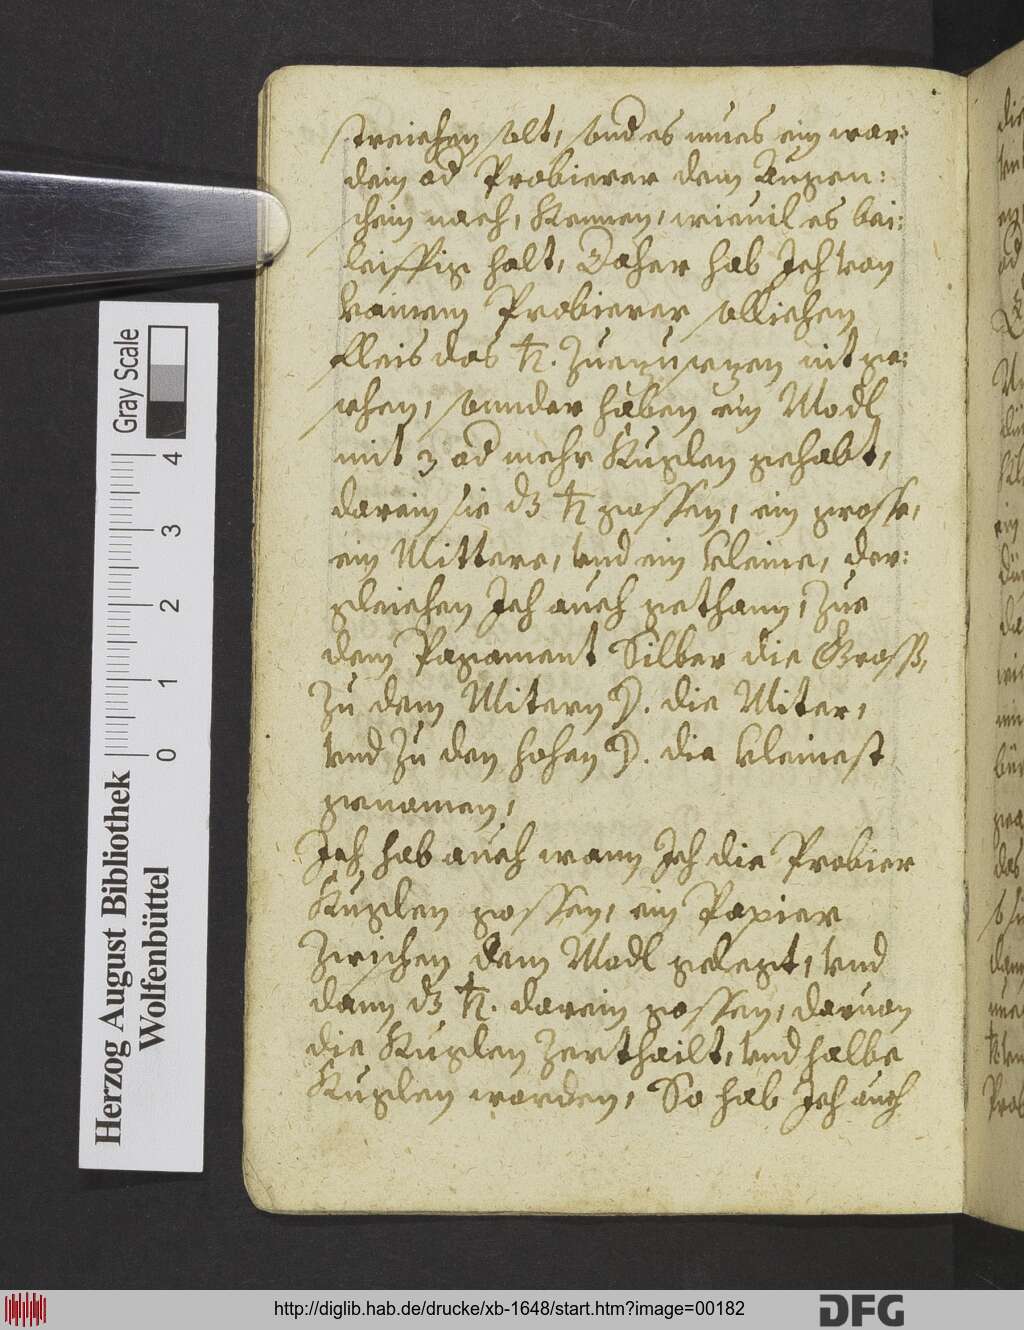 streichen solt, vnd es mues ein war:
dein od Probierer dem Augen:
schein nach, Kennen, wieuil es bei:
leiffig halt, Daher hab Ich von
kainem Probierer sollichen
fleis das ♄. Zue nit ge:
sehen, sunder haben ein Modl
mit 3 od mehr Kuglen gehabt,
darein sie dz ♄ gossen, ein grosse,
ein Mittere, vnd ein kleine, der:
gleichen Ich auch gethann, Zue
dem Pagament Silber die Gross,
Zu dem Mitern ☽. die Miter,
vnd Zu den hohen ☽. die kleinest
genomen,
Ich hab auch wann Ich die Probier
Kuglen gossen, ein Papier
Zwischen dem Modl gelegt, vnd
dann dz ♄. darein gossen, daruon
die Kuglen Zerthailt, vnd halbe
Kuglen worden, So hab Ich auch
Herzog August Bibliothek
Wolfenbüttel
Gray Scale
0 1 2 3 4
http://diglib.hab.de/drucke/xb-1648/start.htm?image=00182
DFG